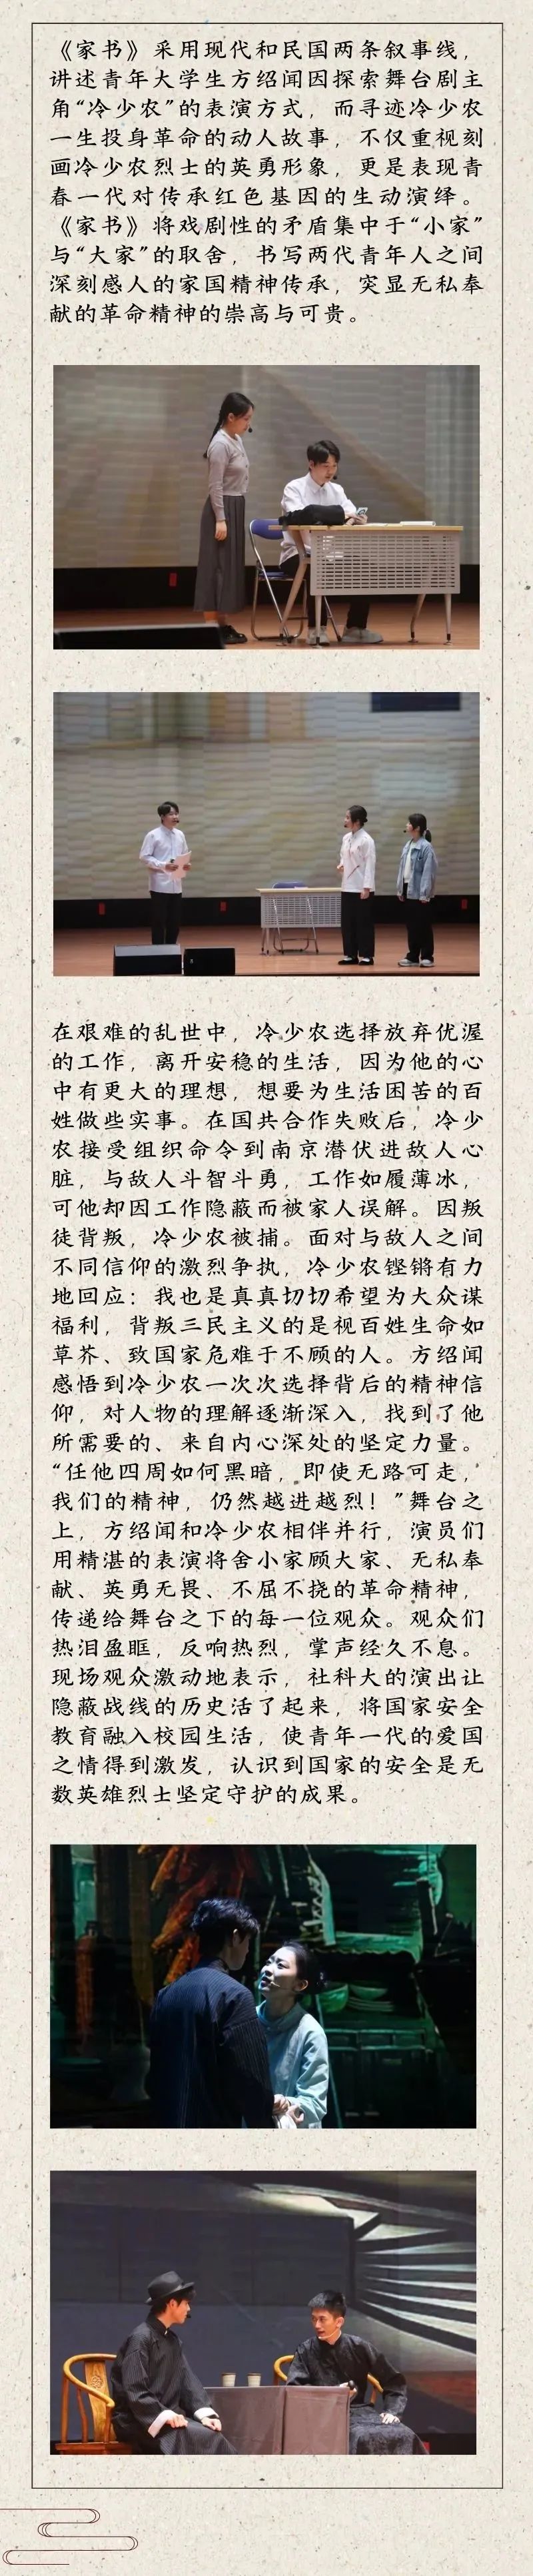 《家书》采用现代和民国两条叙事线，
讲述青年大学生方绍闻因探索舞台剧主
角“冷少农”的表演方式，而寻迹冷少农
一生投身革命的动人故事，不仅重视刻
画冷少农烈士的英勇形象，更是表现青
春一代对传承红色基因的生动演绎。
《家书》将戏剧性的矛盾集中于“小家”
与“大家”的取舍，书写两代青年人之间
深刻感人的家国精神传承，突显无私奉
献的革命精神的崇高与可贵。
在艰难的乱世中，冷少农选择放弃优渥
的工作，离开安稳的生活，因为他的心
中有更大的理想，想要为生活困苦的百
姓做些实事。在国共合作失败后，冷少
农接受组织命令到南京潜伏进敌人心
脏，与敌人斗智斗勇，工作如履薄冰，
可他却因工作隐蔽而被家人误解。因叛
徒背叛，冷少农被捕。面对与敌人之间
不同信仰的激烈争执，冷少农铿锵有力
地回应：我也是真真切切希望为大众谋
福利，背叛三民主义的是视百姓生命如
草芥、致国家危难于不顾的人。方绍闻
感悟到冷少农一次次选择背后的精神信
仰，对人物的理解逐渐深入，找到了他
所需要的、来自内心深处的坚定力量。
“任他四周如何黑暗，即使无路可走，
我们的精神，仍然越进越烈！”舞台之
上，方绍闻和冷少农相伴并行，演员们
用精湛的表演将舍小家顾大家、无私奉
献、英勇无畏、不屈不挠的革命精神，
传递给舞台之下的每一位观众。观众们
热泪盈眶，反响热烈，掌声经久不息。
现场观众激动地表示，社科大的演出让
隐蔽战线的历史活了起来，将国家安全
教育融入校园生活，使青年一代的爱国
之情得到激发，认识到国家的安全是无
数英雄烈士坚定守护的成果。